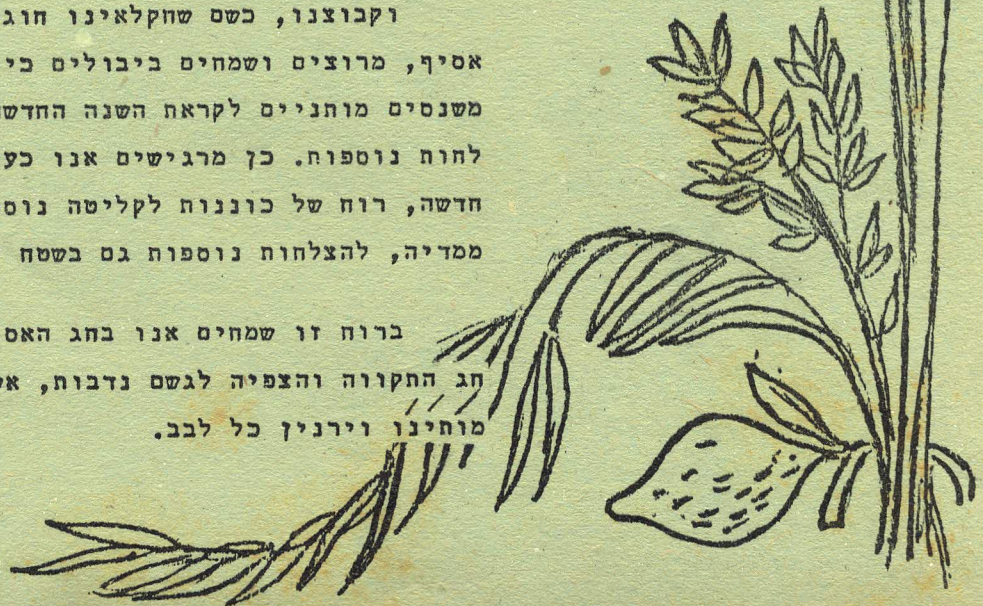 וקבוצנו, כשם שחקלאינו חוג
אסיף, מרוצים ושמחים ביבולים כי
משנסים מותניים לקראת השנה החדש
לחות נוספות. כן מרגישים אנו כע
חדשה, רוח של כוננות לקליטה נוס
ממדיה, להצלחות נוספות גם בשטח
ברוח זו שמחים אנו בחג האס
חג התקווה והצפיה לגשם נדבות, אש
מוחינו וירנין כל לבב.